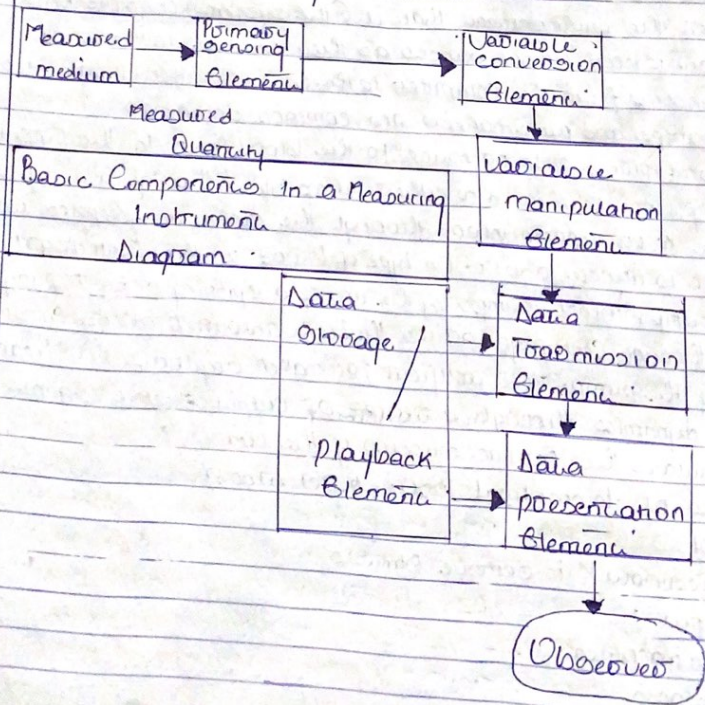 Measured
medium
Primary
Sensing
Element
Variable
conversion
Element
Measured
Quantity
Basic Components in a Measuring
Instrument
Diagram
Variable
manipulation
Element
Data
Storage
Playback
Element
Data
Trasmission
Element
Data
presentation
Element
Observer